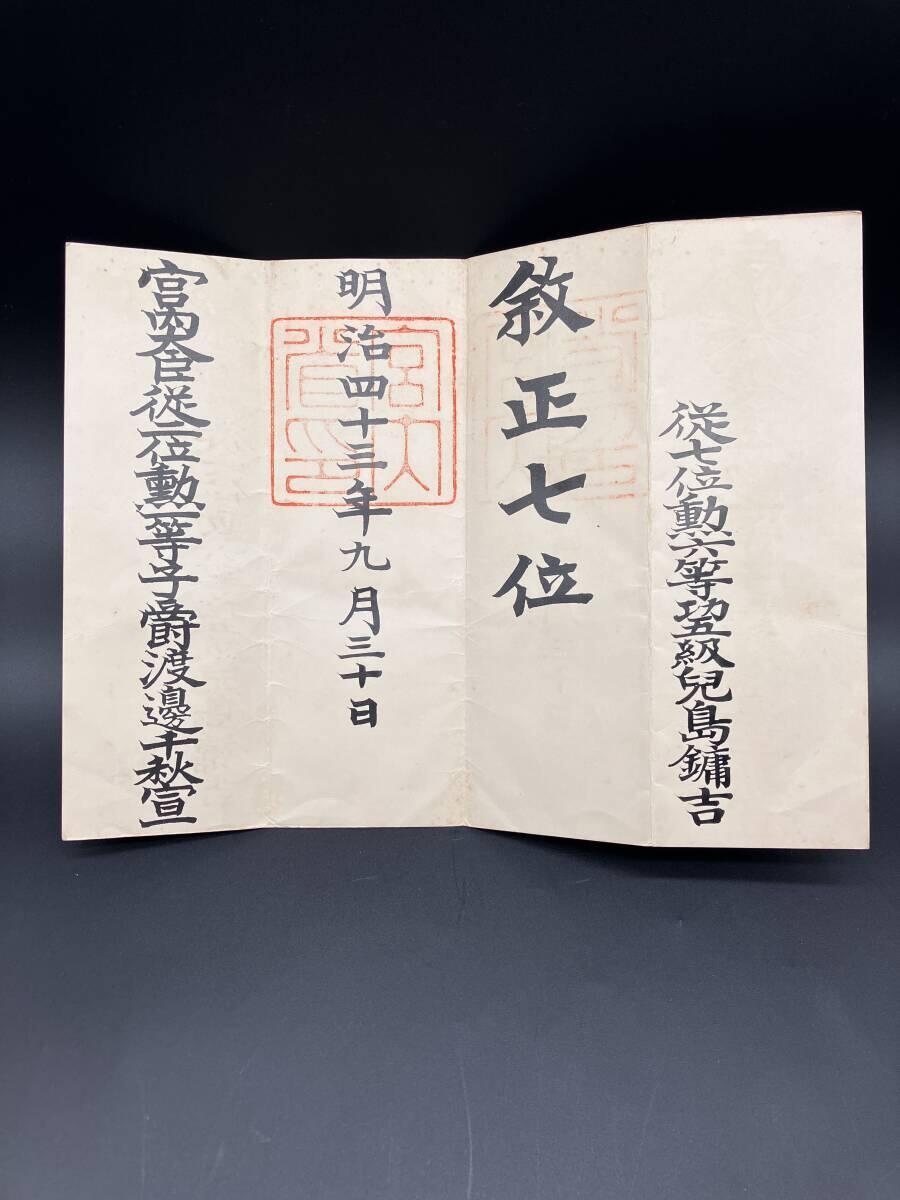 從七位勳六等功五級兒島鏞吉
敘正七位
明治四十三年九月三十日
宮內省印
宮內大臣從二位勳一等子爵渡邊千秋宣